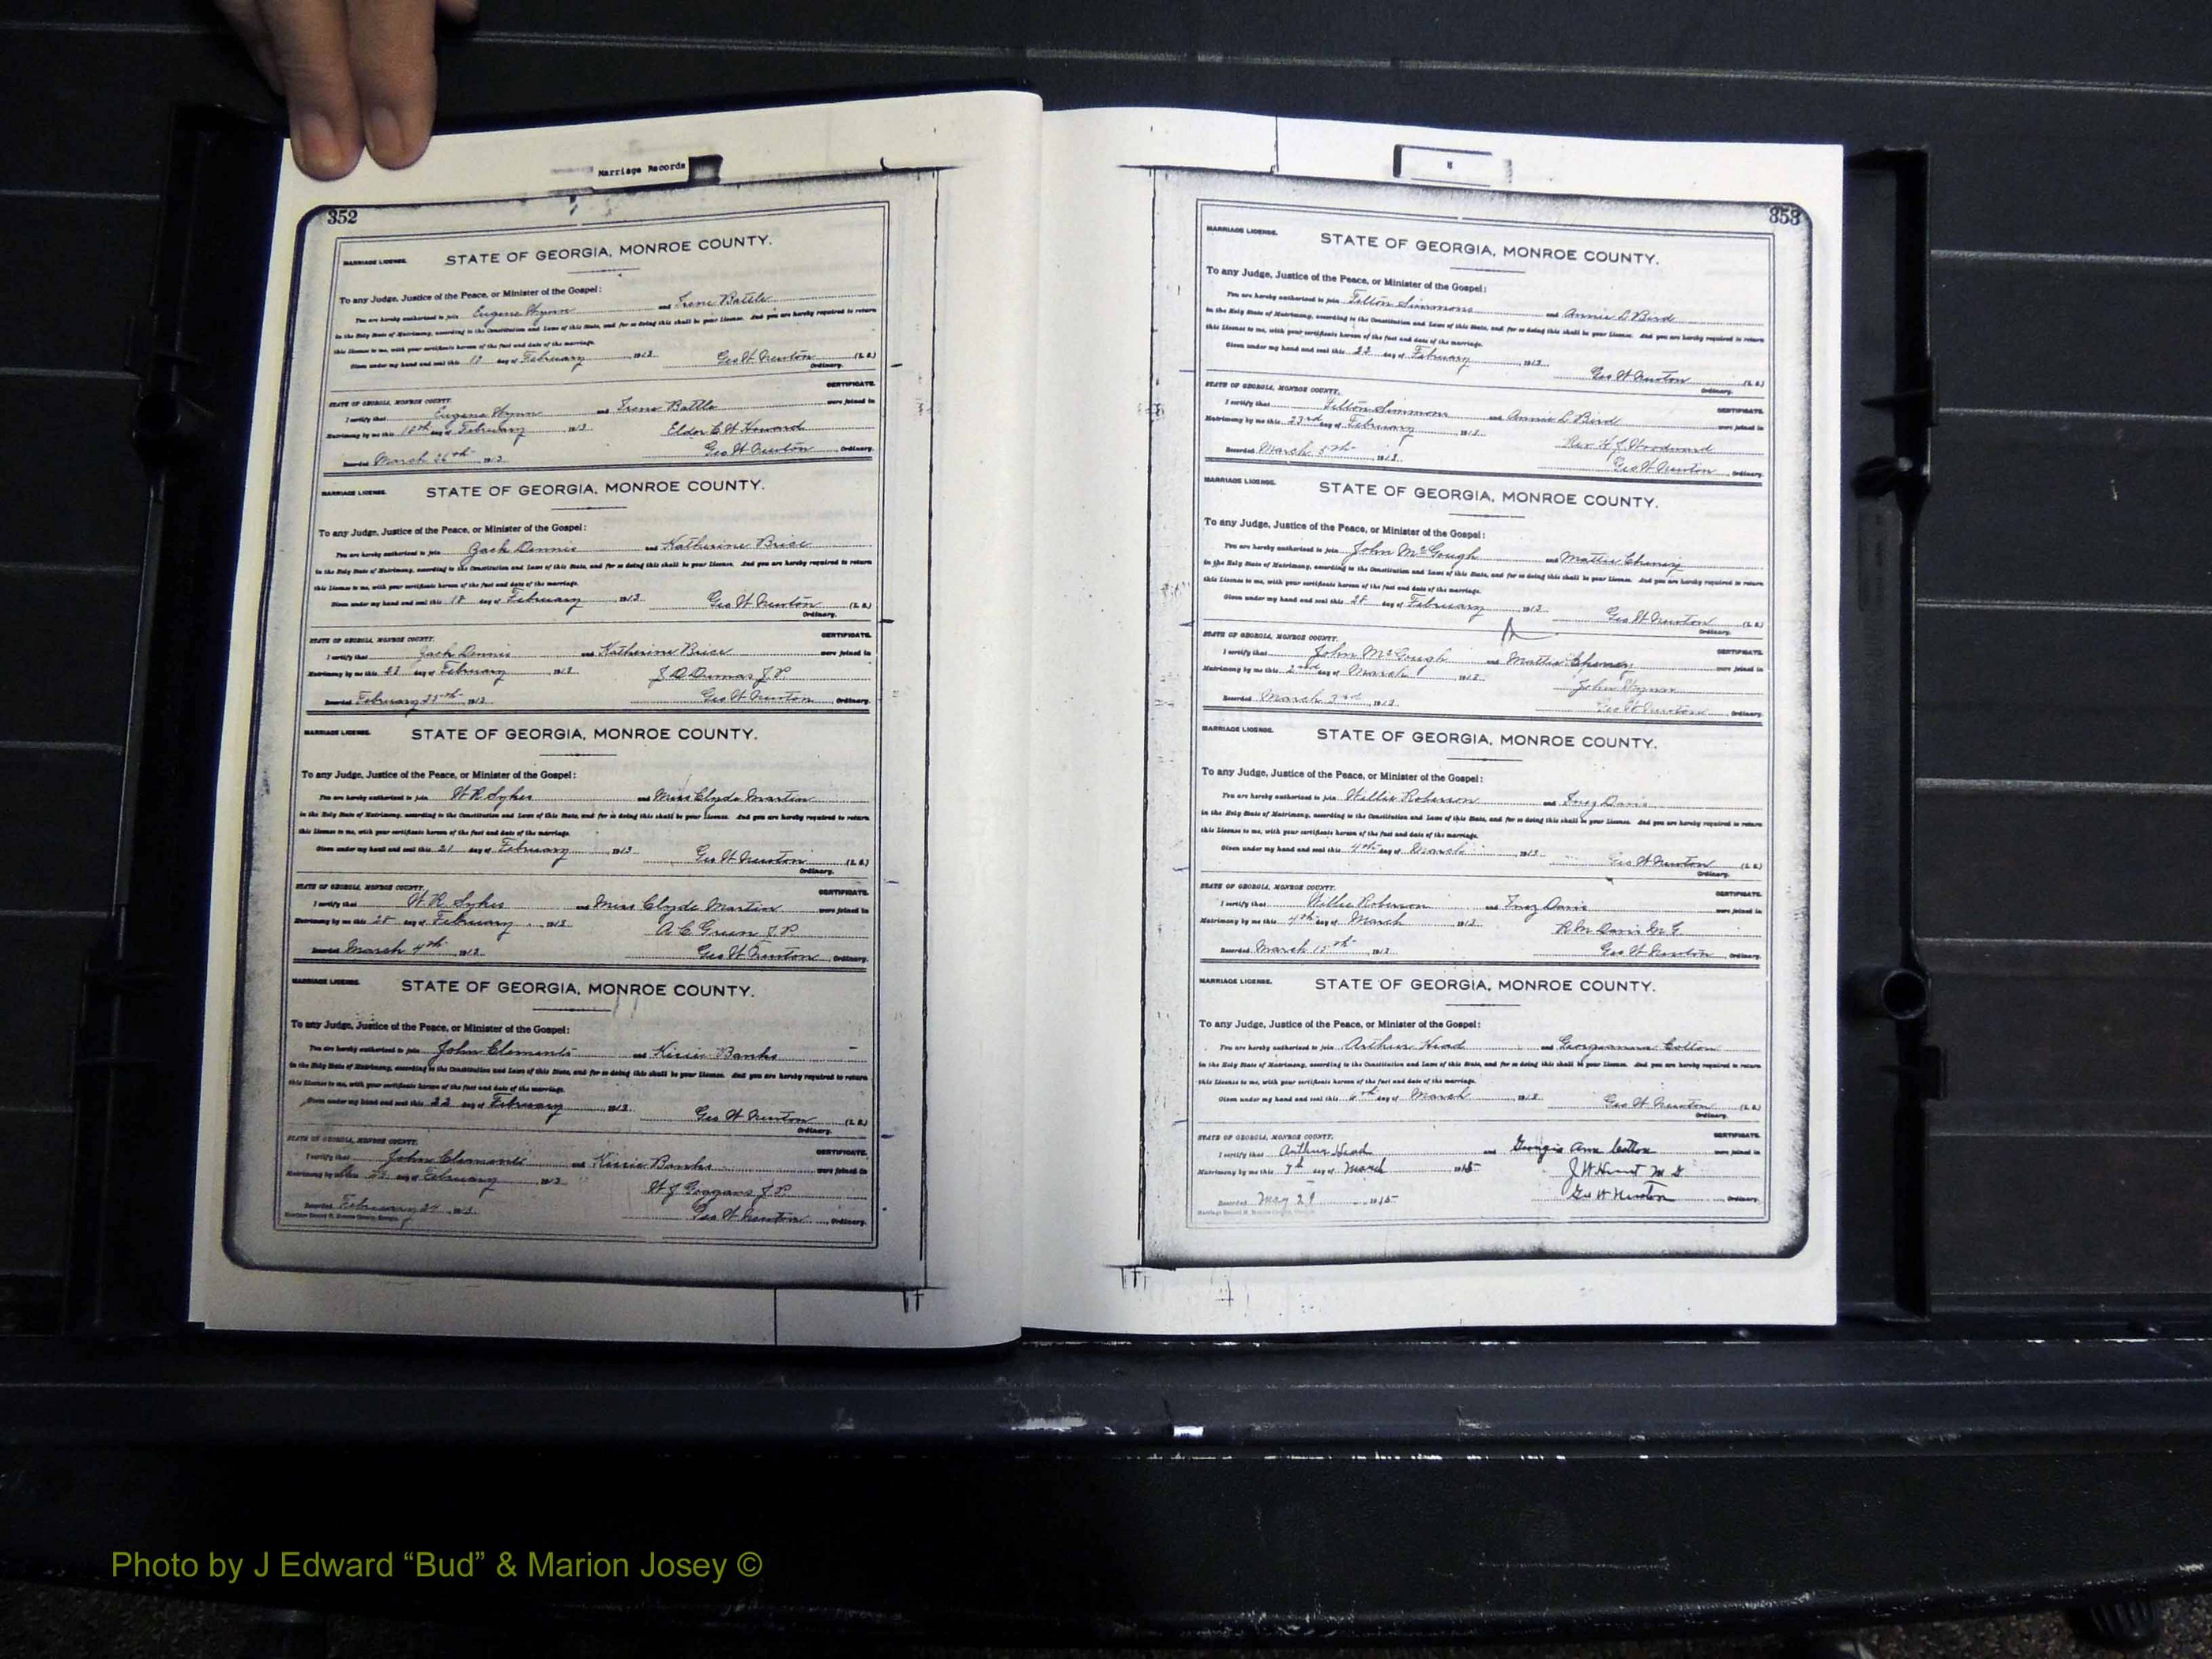 Marriage Records
352
MARRIAGE LICENSE. STATE OF GEORGIA, MONROE COUNTY.
To any Judge, Justice of the Peace, or Minister of the Gospel:
You are hereby authorized to join Eugene Wynn and Irene Battle
in the Holy State of Matrimony, according to the Constitution and Laws of this State, and for so doing this shall be your License. And you are hereby required to return
this License to me, with your certificate hereon of the fact and date of the marriage.
Given under my hand and seal this day of February, 1913 Geo W Newton (L. S.)
Ordinary.
STATE OF GEORGIA, MONROE COUNTY. CERTIFICATE.
I certify that Eugene Wynn and Irene Battle were joined in
Matrimony by me this 18th day of February, 1913 Elder C W Howard
Recorded March 26th, 1913 Geo W Newton, Ordinary.
MARRIAGE LICENSE. STATE OF GEORGIA, MONROE COUNTY.
To any Judge, Justice of the Peace, or Minister of the Gospel:
You are hereby authorized to join Zach Dennis and Katherine Brice
in the Holy State of Matrimony, according to the Constitution and Laws of this State, and for so doing this shall be your License. And you are hereby required to return
this License to me, with your certificate hereon of the fact and date of the marriage.
Given under my hand and seal this 18 day of February, 1913 Geo W Newton (L. S.)
Ordinary.
STATE OF GEORGIA, MONROE COUNTY. CERTIFICATE.
I certify that Zach Dennis and Katherine Brice were joined in
Matrimony by me this 23 day of February, 1913 J D Dumas J.P.
Recorded February 25th, 1913 Geo W Newton, Ordinary.
MARRIAGE LICENSE. STATE OF GEORGIA, MONROE COUNTY.
To any Judge, Justice of the Peace, or Minister of the Gospel:
You are hereby authorized to join W R Sykes and Miss Clyde Martin
in the Holy State of Matrimony, according to the Constitution and Laws of this State, and for so doing this shall be your License. And you are hereby required to return
this License to me, with your certificate hereon of the fact and date of the marriage.
Given under my hand and seal this 21 day of February, 1913 Geo W Newton (L. S.)
Ordinary.
STATE OF GEORGIA, MONROE COUNTY. CERTIFICATE.
I certify that W R Sykes and Miss Clyde Martin were joined in
Matrimony by me this day of February, 1913 A C Green J.P.
Recorded March 4th, 1913 Geo W Newton, Ordinary.
MARRIAGE LICENSE. STATE OF GEORGIA, MONROE COUNTY.
To any Judge, Justice of the Peace, or Minister of the Gospel:
You are hereby authorized to join John Clements and Kissie Banks
in the Holy State of Matrimony, according to the Constitution and Laws of this State, and for so doing this shall be your License. And you are hereby required to return
this License to me, with your certificate hereon of the fact and date of the marriage.
Given under my hand and seal this 22 day of February, 1913 Geo W Newton (L. S.)
Ordinary.
STATE OF GEORGIA, MONROE COUNTY. CERTIFICATE.
I certify that John Clements and Kissie Banks were joined in
Matrimony by me this day of February, 1913 W J Goggans J.P.
Recorded February 24, 1913 Geo W Newton, Ordinary.
353
MARRIAGE LICENSE. STATE OF GEORGIA, MONROE COUNTY.
To any Judge, Justice of the Peace, or Minister of the Gospel:
You are hereby authorized to join Felton Simmons and Annie L Bird
in the Holy State of Matrimony, according to the Constitution and Laws of this State, and for so doing this shall be your License. And you are hereby required to return
this License to me, with your certificate hereon of the fact and date of the marriage.
Given under my hand and seal this 22 day of February, 1913 Geo W Newton (L. S.)
Ordinary.
STATE OF GEORGIA, MONROE COUNTY. CERTIFICATE.
I certify that Felton Simmons and Annie L Bird were joined in
Matrimony by me this 23rd day of February, 1913 Rev H J Woodward
Recorded March 5th, 1913 Geo W Newton, Ordinary.
MARRIAGE LICENSE. STATE OF GEORGIA, MONROE COUNTY.
To any Judge, Justice of the Peace, or Minister of the Gospel:
You are hereby authorized to join John McGough and Mattie
in the Holy State of Matrimony, according to the Constitution and Laws of this State, and for so doing this shall be your License. And you are hereby required to return
this License to me, with your certificate hereon of the fact and date of the marriage.
Given under my hand and seal this 28 day of February, 1913 Geo W Newton (L. S.)
Ordinary.
STATE OF GEORGIA, MONROE COUNTY. CERTIFICATE.
I certify that John McGough and Mattie were joined in
Matrimony by me this 2nd day of March, 1913 John Wynn
Recorded March 3rd, 1913 Geo W Newton, Ordinary.
MARRIAGE LICENSE. STATE OF GEORGIA, MONROE COUNTY.
To any Judge, Justice of the Peace, or Minister of the Gospel:
You are hereby authorized to join Willie Roberson and Inez Davis
in the Holy State of Matrimony, according to the Constitution and Laws of this State, and for so doing this shall be your License. And you are hereby required to return
this License to me, with your certificate hereon of the fact and date of the marriage.
Given under my hand and seal this 4th day of March, 1913 Geo W Newton (L. S.)
Ordinary.
STATE OF GEORGIA, MONROE COUNTY. CERTIFICATE.
I certify that Willie Roberson and Inez Davis were joined in
Matrimony by me this 4th day of March, 1913 R M Davis M G
Recorded March 15th, 1913 Geo W Newton, Ordinary.
MARRIAGE LICENSE. STATE OF GEORGIA, MONROE COUNTY.
To any Judge, Justice of the Peace, or Minister of the Gospel:
You are hereby authorized to join Arthur Head and Georgianna Colton
in the Holy State of Matrimony, according to the Constitution and Laws of this State, and for so doing this shall be your License. And you are hereby required to return
this License to me, with your certificate hereon of the fact and date of the marriage.
Given under my hand and seal this 6th day of March, 1913 Geo W Newton (L. S.)
Ordinary.
STATE OF GEORGIA, MONROE COUNTY. CERTIFICATE.
I certify that Arthur Head and Georgia Ann Colton were joined in
Matrimony by me this 7th day of March 1915 J W Hunt M G
Recorded May 29, 1915 Geo W Newton, Ordinary.
Photo by J Edward “Bud” & Marion Josey ©